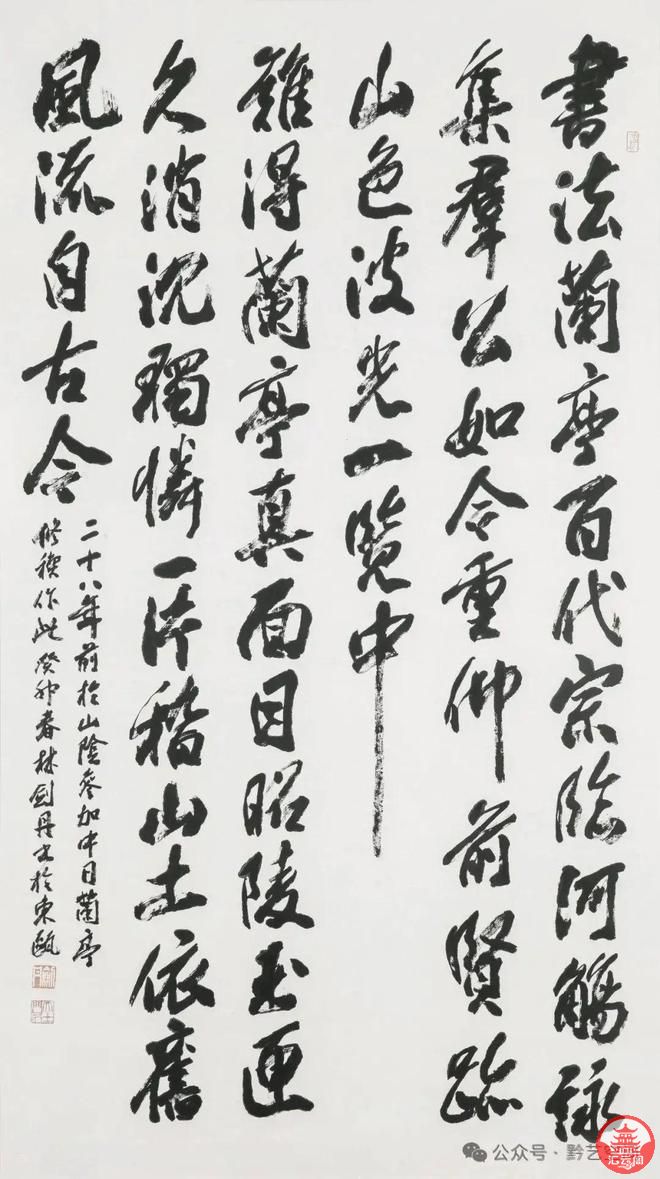 書法蘭亭百代宗臨河觴詠
集羣公如今重仰前賢跡
山色波光一覽中
難得蘭亭真面目昭陵玉匣
久消沈獨憐一片稽山土依舊
風流自古今
二十八年前於山陰參加中日蘭亭
修禊作此癸卯春林劍丹書於東甌
公众号 · 黔艺